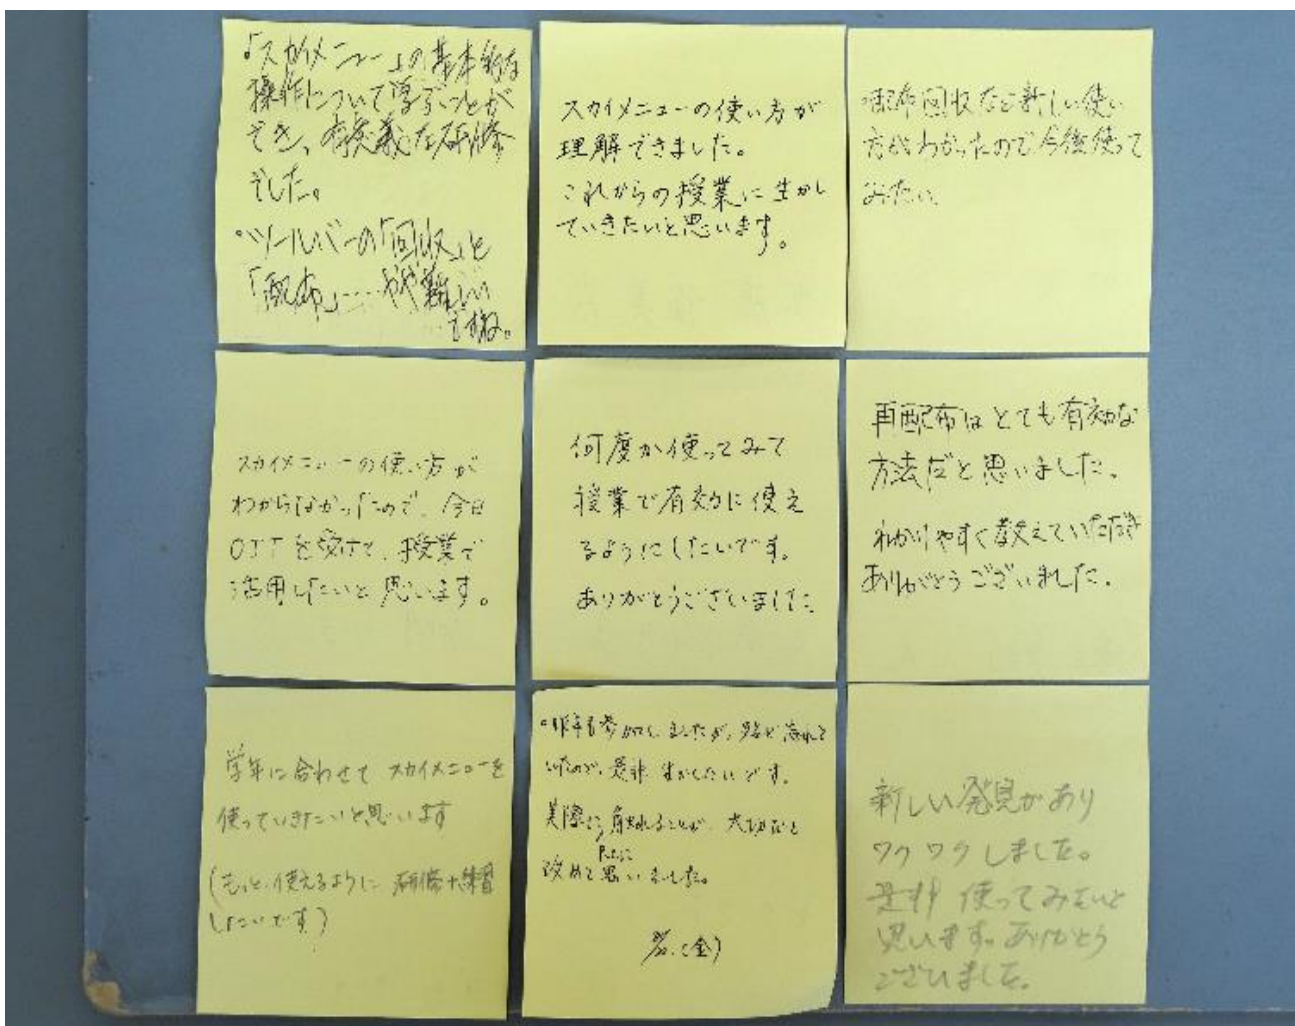 「スカイメニュー」の基本的な
操作について学ぶことが
でき、有意義な研修
でした。
・ツールバーの「回収」と
「配布」……やや難しい
ですね。
スカイメニューの使い方が
理解できました。
これからの授業に生かし
ていきたいと思います。
配布回収など新しい使い
方がわかったので今後使って
みたい
スカイメニューの使い方が
わからなかったので、今日
OJTを受けて、授業で
活用したいと思います。
何度か使ってみて
授業で有効に使え
るようにしたいです。
ありがとうございました
再配布はとても有効な
方法だと思いました。
わかりやすく教えていただき
ありがとうございました。
学年に合わせてスカイメニューを
使っていきたいと思います
(もっと使えるように 研修+練習
したいです)
・昨年も参加しましたが、殆ど忘れて
いたので、是非 生かしたいです。
実際に触れることが 大切だと
改めて思いました。
(金)
新しい発見があり
ワクワクしました。
是非 使ってみたいと
思います。ありがとう
ございました。